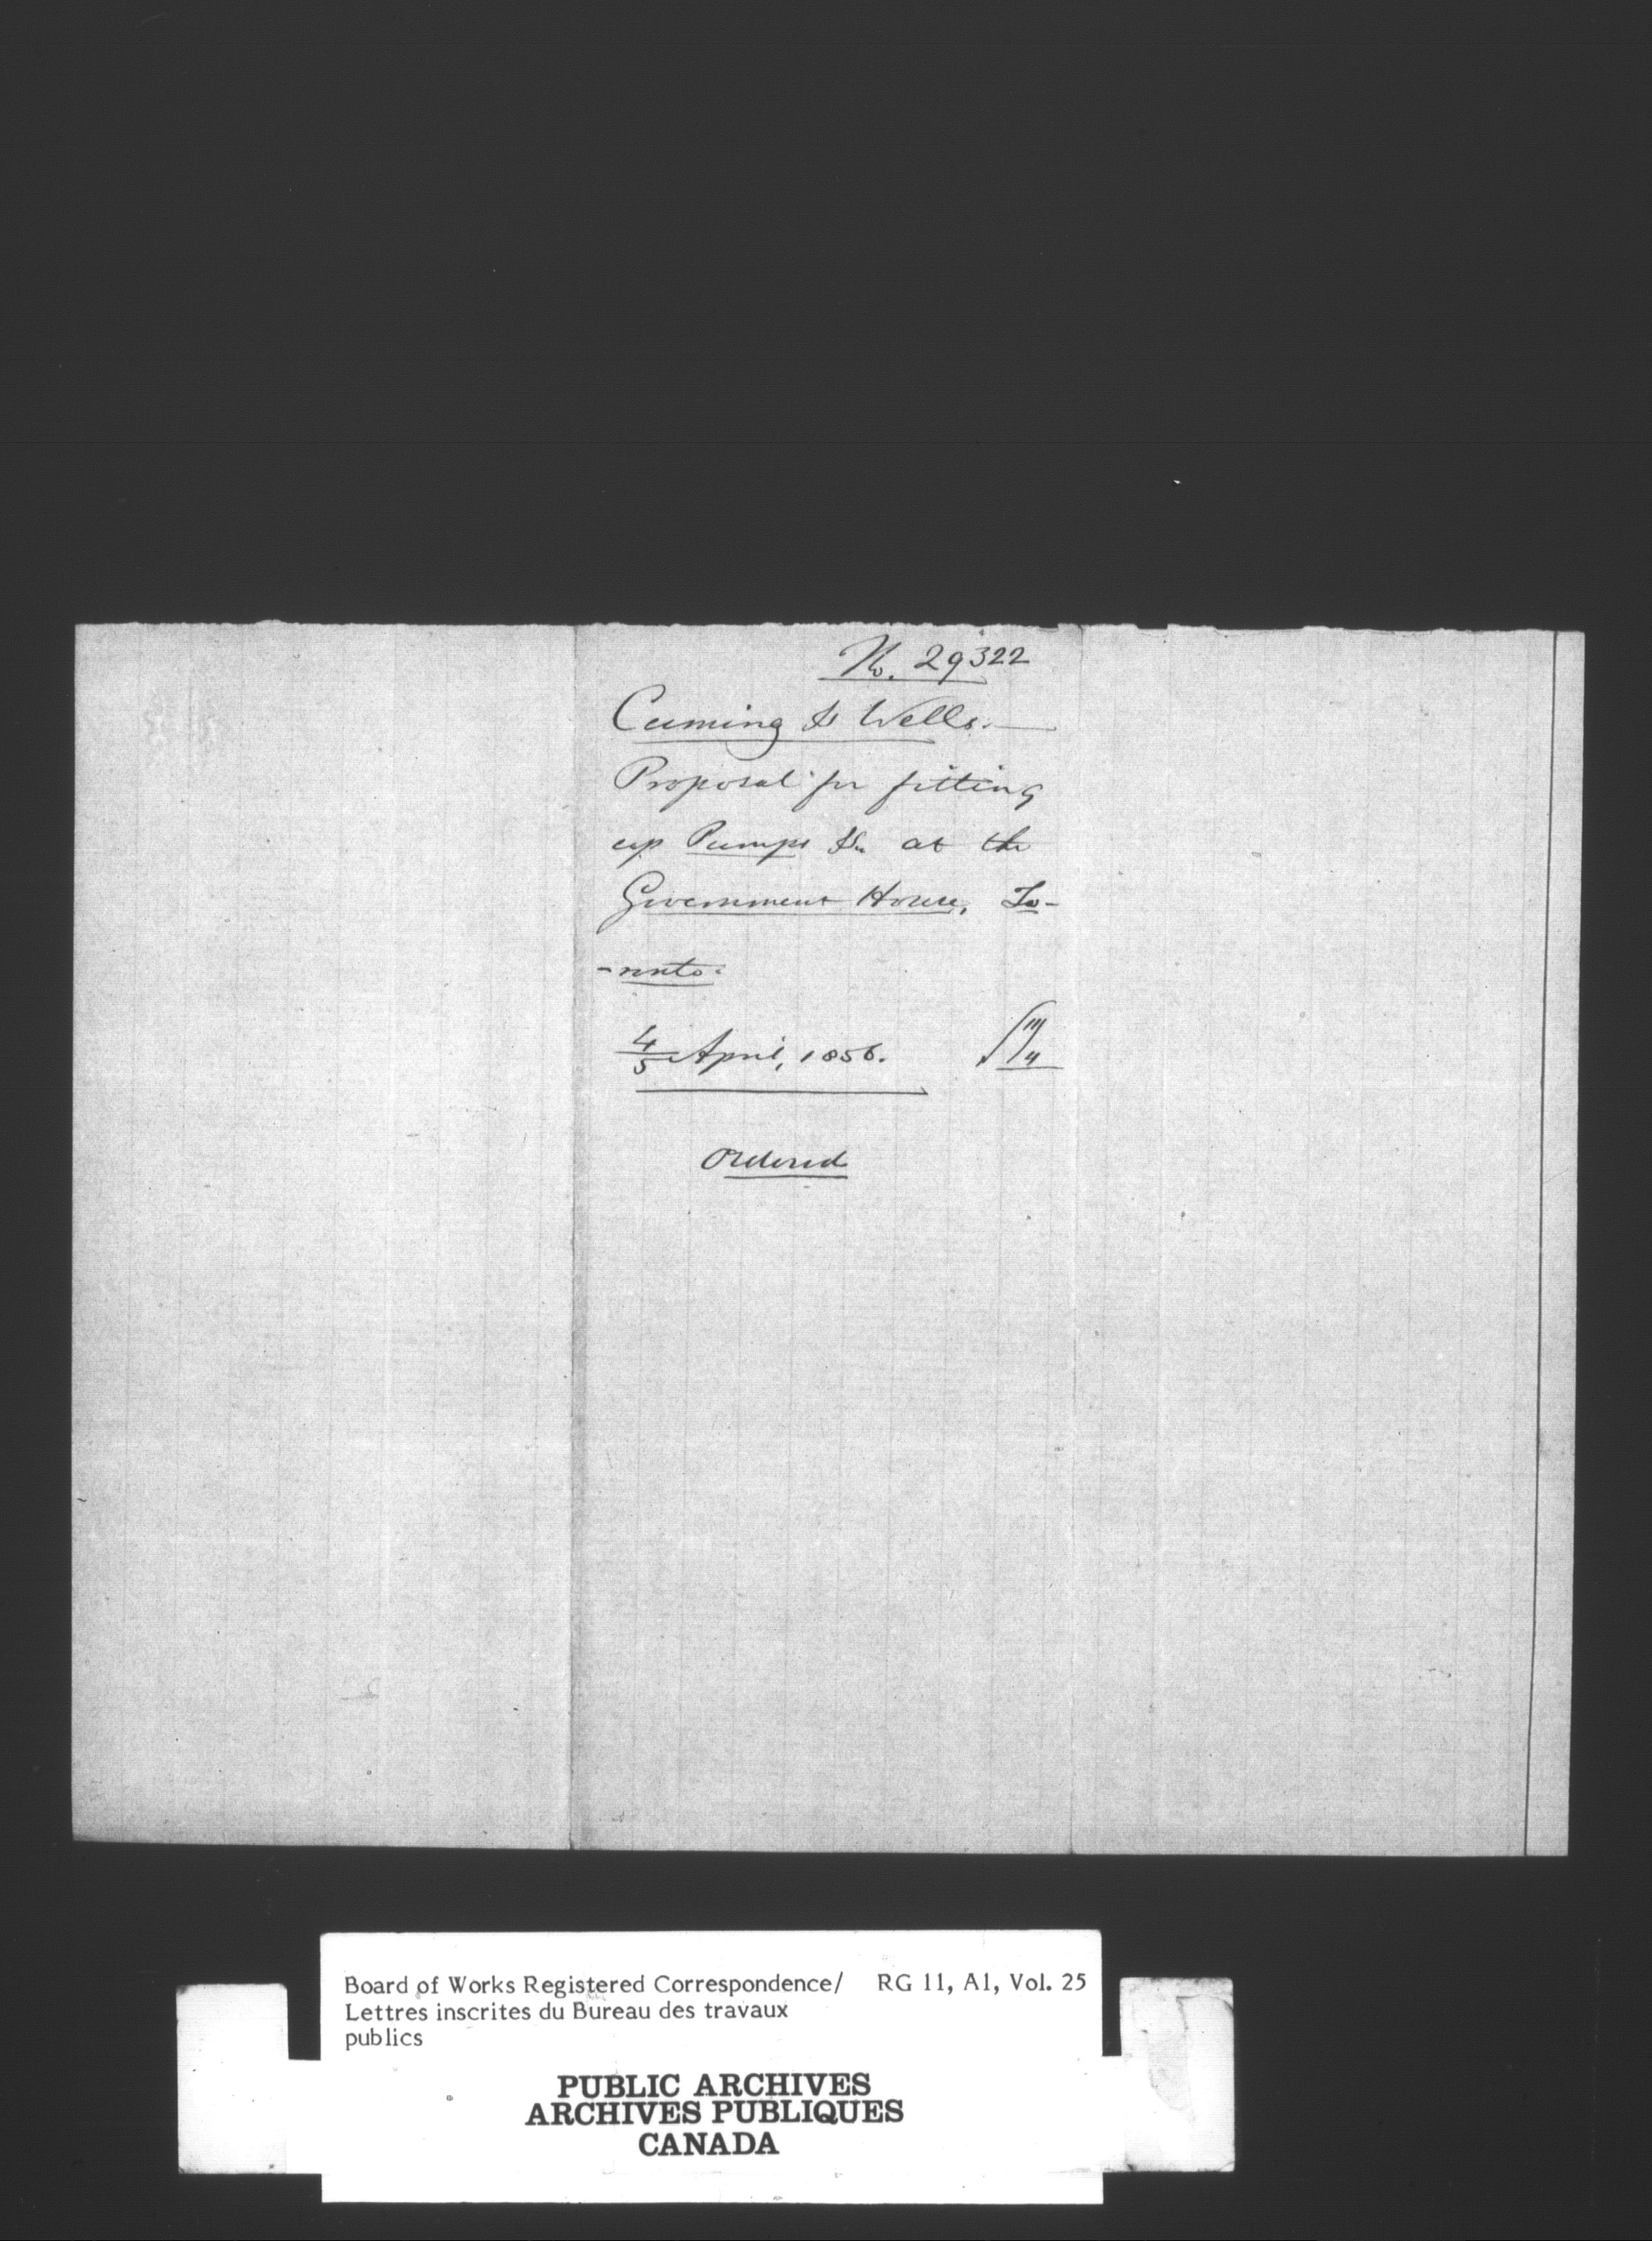 No. 29322
Cuming & Wells.
Proposal for fitting
up Pumps &c. at the
Government House, To-
-ronto.
4/5 April, 1856.
Ordered
Board of Works Registered Correspondence/ RG 11, A1, Vol. 25
Lettres inscrites du Bureau des travaux
publics
PUBLIC ARCHIVES
ARCHIVES PUBLIQUES
CANADA